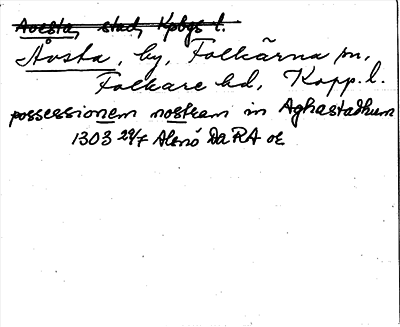 Avesta, stad, Kpbgs l.
Åvsta, by, Folkärna sn,
Folkare hd, Kopp. l.
possessionem nostram in Aghastadhum
1303 29/7 Alsnö Da RA or